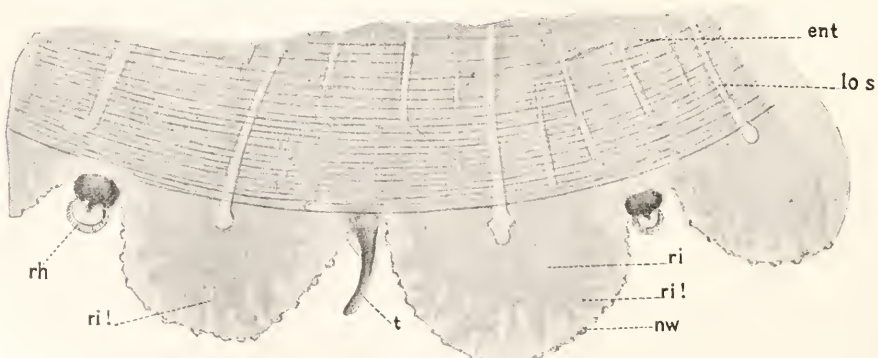 ent
lo s
rh
ri
ri!
ri!
t
nw